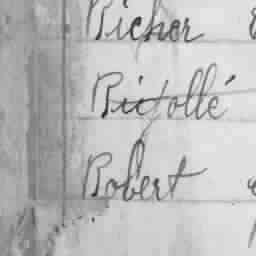 Bicher
Bitollé
Bobert